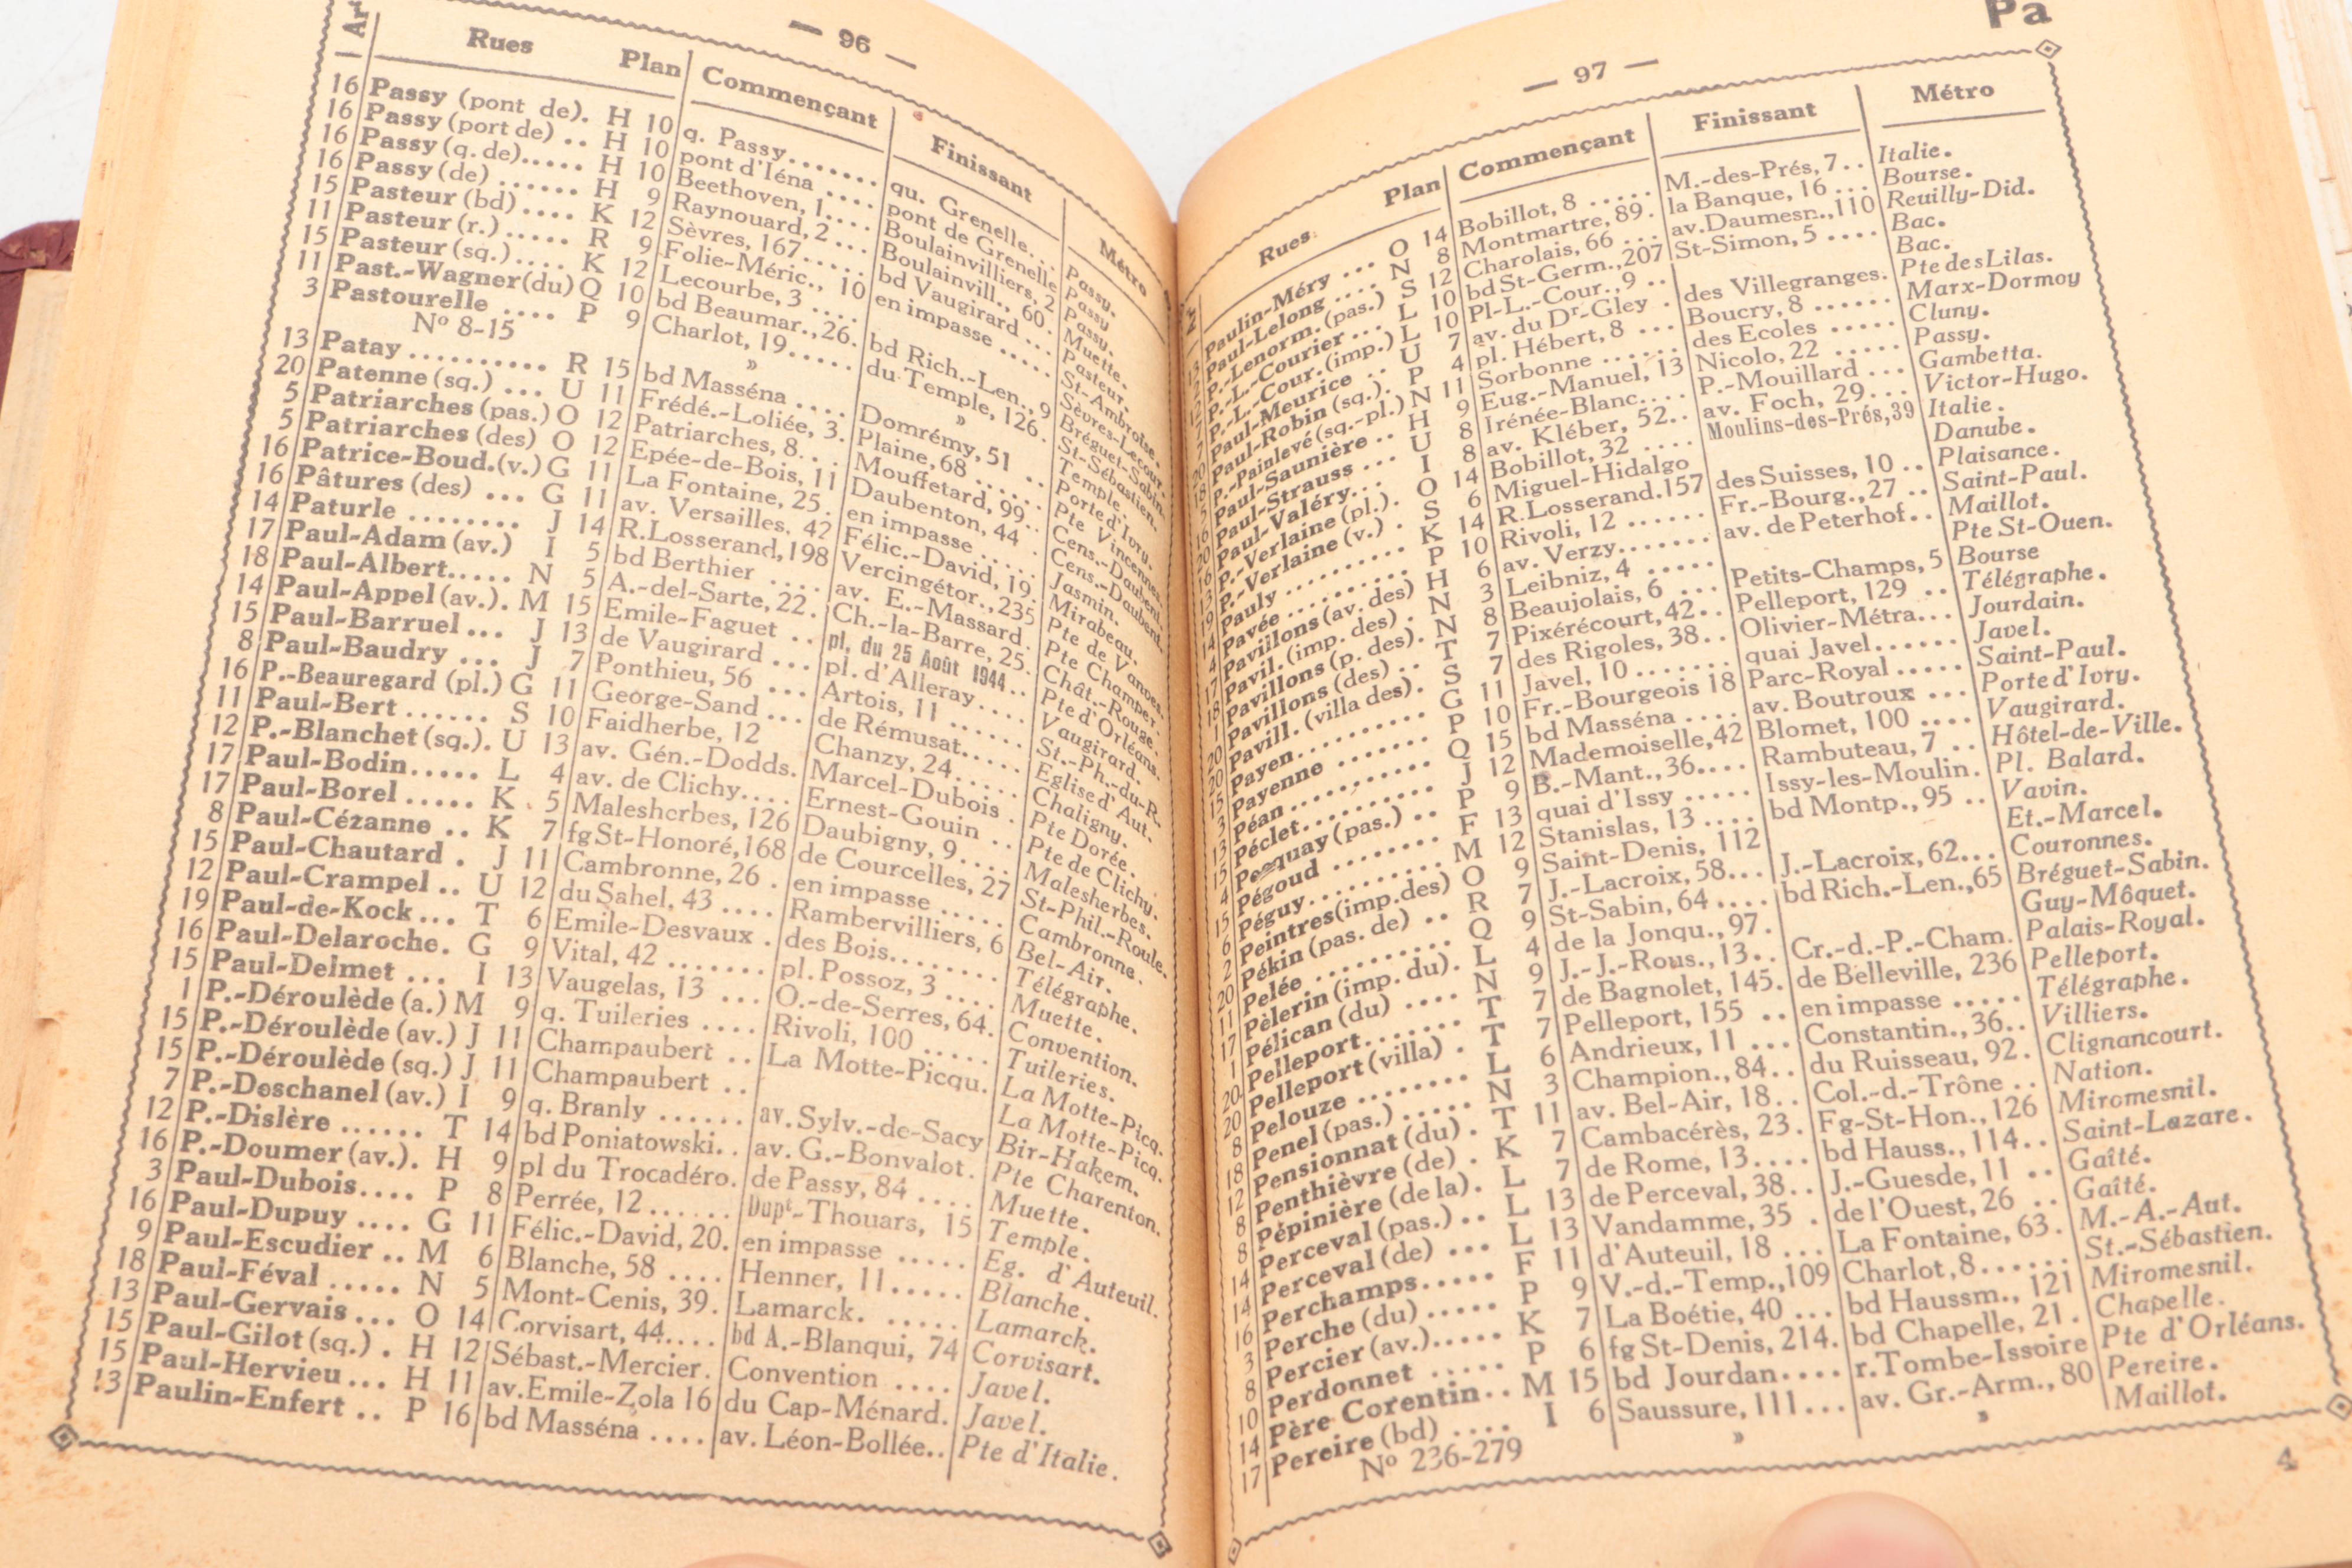 — 96 —
Arr Rues Plan Commençant Finissant Métro
16 Passy (pont de). H 10 q. Passy....... qu. Grenelle... Passy.
16 Passy (port de) .. H 10 pont d'Iéna .... pont de Grenelle Passy.
16 Passy (q. de)..... H 10 Beethoven, 1.... Boulainvilliers, 2 Passy.
16 Passy (de) ...... H 9 Raynouard, 2 ... Boulainvill., 60. Muette.
15 Pasteur (bd) .... K 12 Sèvres, 167..... bd Vaugirard ... Pasteur.
11 Pasteur (r.) ..... R 9 Folie-Méric., 10 en impasse ..... St-Ambroise.
15 Pasteur (sq.).... K 12 Lecourbe, 3 .... Sèvres-Lecour.
11 Past.-Wagner(du) Q 10 bd Beaumar.,26. bd Rich.-Len., 9 Bréguet-Sabin.
3 Pastourelle .... P 9 Charlot, 19.... du Temple, 126. St-Sébastien.
N° 8-15 » » Temple.
13 Patay .......... R 15 bd Masséna .... Domrémy, 51 .. Porte d'Ivry.
20 Patenne (sq.) ... U 11 Frédé.-Loliée, 3. Plaine, 68 ..... Pte Vincennes.
5 Patriarches (pas.) O 12 Patriarches, 8... Mouffetard, 99.. Cens.-Daubent.
5 Patriarches (des) O 12 Epée-de-Bois, 11 Daubenton, 44 . Cens.-Daubent.
16 Patrice-Boud.(v.) G 11 La Fontaine, 25. en impasse ..... Jasmin.
16 Pâtures (des) ... G 11 av. Versailles. 42 Félic.-David, 19. Mirabeau.
14 Paturle ........ J 14 R.Losserand,198 Vercingétor.,235 Pte de Vanves.
17 Paul-Adam (av.) I 5 bd Berthier .... av. E.-Massard. Pte Champer.
18 Paul-Albert..... N 5 A.-del-Sarte, 22. Ch.-la-Barre, 25. Chât.-Rouge.
14 Paul-Appel (av.). M 15 Emile-Faguet .. pl. du 25 Août 1944.. Pte d'Orléans.
15 Paul-Barruel ... J 13 de Vaugirard ... pl. d'Alleray.... Vaugirard.
8 Paul-Baudry ... J 7 Ponthieu, 56 ... Artois, 11 ...... St.-Ph.-du-R.
16 P.-Beauregard (pl.) G 11 George-Sand ... de Rémusat..... Eglise d'Aut.
11 Paul-Bert ...... S 10 Faidherbe, 12 Chanzy, 24..... Chaligny.
12 P.-Blanchet (sq.). U 13 av. Gén.-Dodds. Marcel-Dubois . Pte Dorée.
17 Paul-Bodin..... L 4 av. de Clichy.... Ernest-Gouin .. Pte de Clichy.
17 Paul-Borel ..... K 5 Malesherbes, 126 Daubigny, 9.... Malesherbes.
8 Paul-Cézanne .. K 7 fg St-Honoré,168 de Courcelles, 27 St-Phil.-Roule.
15 Paul-Chautard . J 11 Cambronne, 26 . en impasse ..... Cambronne.
12 Paul-Crampel .. U 12 du Sahel, 43 .... Rambervilliers, 6 Bel-Air.
19 Paul-de-Kock ... T 6 Emile-Desvaux . des Bois........ Télégraphe.
16 Paul-Delaroche. G 9 Vital, 42 ....... pl. Possoz, 3 .... Muette.
15 Paul-Delmet ... I 13 Vaugelas, 13 ... O.-de-Serres, 64. Convention.
1 P.-Déroulède (a.) M 9 q. Tuileries .... Rivoli, 100 ..... Tuileries.
15 P.-Déroulède (av.) J 11 Champaubert .. La Motte-Picqu. La Motte-Picq.
15 P.-Déroulède (sq.) J 11 Champaubert .. La Motte-Picq.
7 P.-Deschanel (av.) I 9 q. Branly ...... av. Sylv.-de-Sacy Bir-Hakem.
12 P.-Dislère ...... T 14 bd Poniatowski.. av. G.-Bonvalot. Pte Charenton.
16 P.-Doumer (av.). H 9 pl du Trocadéro. de Passy, 84 .... Muette.
3 Paul-Dubois.... P 8 Perrée, 12...... Dupt-Thouars, 15 Temple.
16 Paul-Dupuy .... G 11 Félic.-David, 20. en impasse ..... Eg. d'Auteuil.
9 Paul-Escudier .. M 6 Blanche, 58 .... Henner, 11..... Blanche.
18 Paul-Féval ..... N 5 Mont-Cenis, 39. Lamarck. ..... Lamarck.
13 Paul-Gervais ... O 14 Corvisart, 44.... bd A.-Blanqui, 74 Corvisart.
15 Paul-Gilot (sq.) . H 12 Sébast.-Mercier. Convention .... Javel.
15 Paul-Hervieu ... H 11 av.Emile-Zola 16 du Cap-Ménard. Javel.
13 Paulin-Enfert .. P 16 bd Masséna .... av. Léon-Bollée.. Pte d'Italie.
Pa
— 97 —
Rues Plan Commençant Finissant Métro
Paulin-Méry ... O 14 Bobillot, 8 ..... M.-des-Prés, 7.. Italie.
Paul-Lelong .... N 8 Montmartre, 89. la Banque, 16 ... Bourse.
P.-Lenorm. (pas.) S 12 Charolais, 66 ... av.Daumesn.,110 Reuilly-Did.
P.-L.-Courier ... L 10 bd St-Germ.,207 St-Simon, 5 .... Bac.
P.-L.-Cour. (imp.) L 10 Pl-L.-Cour., 9 .. Bac.
Paul-Meurice .. U 7 av. du Dr-Gley . des Villegranges. Pte des Lilas.
Paul-Robin (sq.). P 4 pl. Hébert, 8 ... Boucry, 8 ...... Marx-Dormoy
P.-Painlevé (sq.-pl.) N 11 Sorbonne ...... des Ecoles ..... Cluny.
Paul-Saunière .. H 9 Eug.-Manuel, 13 Nicolo, 22 ..... Passy.
Paul-Strauss ... U 8 Irénée-Blanc.... P.-Mouillard ... Gambetta.
Paul-Valéry... I 8 av. Kléber, 52.. av. Foch, 29... Victor-Hugo.
P.-Verlaine (pl.). O 14 Bobillot, 32 .... Moulins-des-Prés,39 Italie.
P.-Verlaine (v.) . S 6 Miguel-Hidalgo Danube.
Pauly .......... K 14 R.Losserand.157 des Suisses, 10 .. Plaisance.
Pavée .......... P 10 Rivoli, 12 ...... Fr.-Bourg.,27 .. Saint-Paul.
Pavillons (av. des) H 6 av. Verzy....... av. de Peterhof.. Maillot.
Pavil. (imp. des) . N 3 Leibniz, 4 ..... Pte St-Ouen.
Pavillons (p. des). N 8 Beaujolais, 6 ... Petits-Champs, 5 Bourse
Pavillons (des) .. T 7 Pixérécourt, 42.. Pelleport, 129 .. Télégraphe.
Pavill. (villa des). S 7 des Rigoles, 38.. Olivier-Métra... Jourdain.
Payen.......... G 11 Javel, 10 ....... quai Javel...... Javel.
Payenne ....... P 10 Fr.-Bourgeois 18 Parc-Royal ..... Saint-Paul.
Péan........... Q 15 bd Masséna .... av. Boutroux ... Porte d'Ivry.
Péclet.......... J 12 Mademoiselle,42 Blomet, 100 .... Vaugirard.
Pecquay (pas.) .. P 9 B.-Mant., 36.... Rambuteau, 7 .. Hôtel-de-Ville.
Pégoud ........ F 13 quai d'Issy ..... Issy-les-Moulin. Pl. Balard.
Péguy.......... M 12 Stanislas, 13 .... bd Montp., 95 .. Vavin.
Peintres (imp.des) O 9 Saint-Denis, 112 Et.-Marcel.
Pékin (pas. de) .. R 7 J.-Lacroix, 58... J.-Lacroix, 62... Couronnes.
Pelée .......... Q 9 St-Sabin, 64 .... bd Rich.-Len.,65 Bréguet-Sabin.
Pèlerin (imp. du). L 4 de la Jonqu., 97. Guy-Môquet.
Pélican (du) .... N 9 J.-J.-Rous., 13.. Cr.-d.-P.-Cham. Palais-Royal.
20 Pelleport....... T 7 de Bagnolet, 145. de Belleville, 236 Pelleport.
20 Pelleport (villa) . T 7 Pelleport, 155 .. en impasse ..... Télégraphe.
8 Pelouze ........ L 6 Andrieux, 11 ... Constantin., 36.. Villiers.
18 Penel (pas.) ..... N 3 Champion., 84.. du Ruisseau, 92. Clignancourt.
12 Pensionnat (du) . T 11 av. Bel-Air, 18.. Col.-d.-Trône .. Nation.
8 Penthièvre (de) . K 7 Cambacérès, 23. Fg-St-Hon., 126 Miromesnil.
8 Pépinière (de la). L 7 de Rome, 13.... bd Hauss., 114.. Saint-Lazare.
14 Perceval (pas.) .. L 13 de Perceval, 38.. J.-Guesde, 11 .. Gaîté.
14 Perceval (de) ... L 13 Vandamme, 35 . de l'Ouest, 26 .. Gaîté.
16 Perchamps..... F 11 d'Auteuil, 18 ... La Fontaine, 63. M.-A.-Aut.
3 Perche (du) ..... P 9 V.-d.-Temp.,109 Charlot,8...... St.-Sébastien.
8 Percier (av.)..... K 7 La Boétie, 40 ... bd Haussm., 121 Miromesnil.
10 Perdonnet ..... P 6 fg St-Denis, 214. bd Chapelle, 21. Chapelle.
14 Père Corentin.. M 15 bd Jourdan.... r.Tombe-Issoire Pte d'Orléans.
17 Pereire (bd) .... I 6 Saussure, 111... av. Gr.-Arm., 80 Pereire.
N° 236-279 » » Maillot.
4